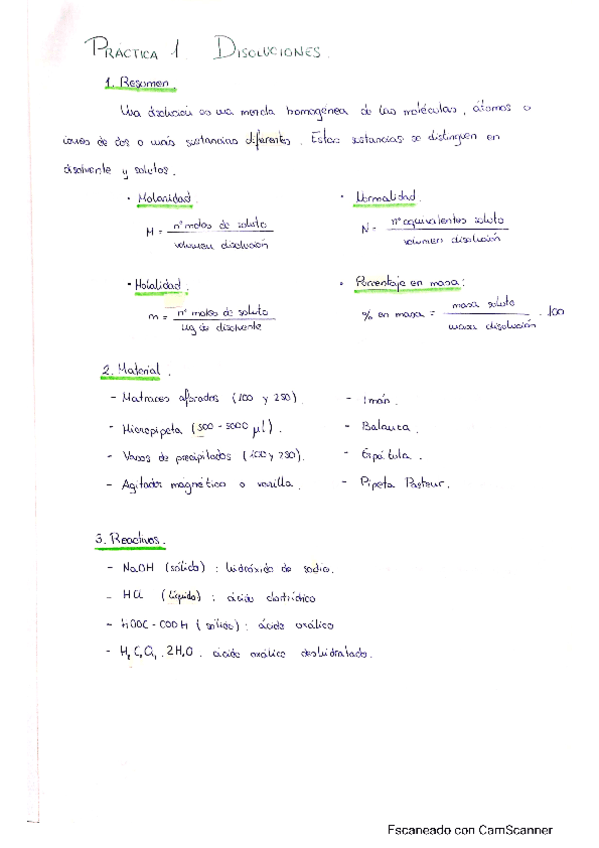 PRÁCTICA 1. DISOLUCIONES.
1. Resumen.
Una disolución es una mezcla homogénea de las moléculas, átomos o
iones de dos o más sustancias diferentes. Estas sustancias se distinguen en
disolvente y solutos.
· Molaridad.
M = nº moles de soluto / volumen disolución
· Normalidad.
N = nº equivalentes soluto / volumen disolución
· Molalidad.
m = nº moles de soluto / kg de disolvente
· Porcentaje en masa:
% en masa = masa soluto / masa disolución · 100
2. Material.
- Matraces aforados (100 y 250).
- Micropipeta (500 - 5000 µl).
- Vasos de precipitados (100 y 250).
- Agitador magnético o varilla.
- Imán.
- Balanza.
- Espátula.
- Pipeta Pasteur.
3. Reactivos.
- NaOH (sólido): hidróxido de sodio.
- HCl (líquido): ácido clorhídrico
- HOOC - COOH (sólido): ácido oxálico
- H₂C₂O₄ · 2H₂O. ácido oxálico deshidratado.
Escaneado con CamScanner